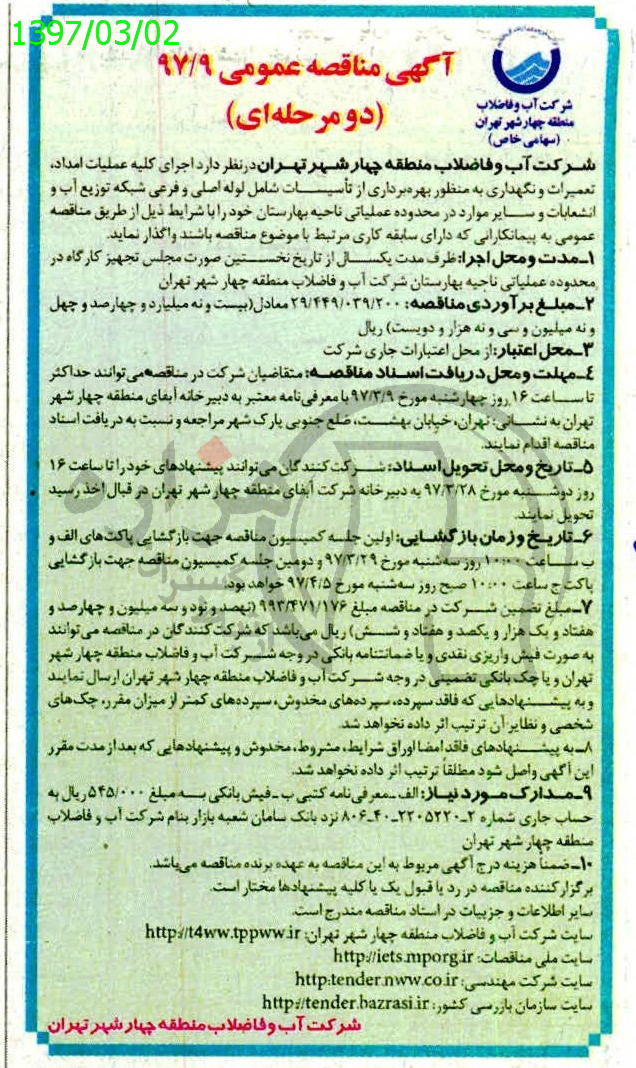 1397/03/02
آگهی مناقصه عمومی ۹۷/۹
(دو مرحله‌ای)
شرکت آب و فاضلاب
منطقه چهار شهر تهران
(سهامی خاص)
شرکت آب و فاضلاب منطقه چهار شهر تهران در نظر دارد اجرای کلیه عملیات امداد،
تعمیرات و نگهداری به منظور بهره‌برداری از تأسیسات شامل لوله اصلی و فرعی شبکه توزیع آب و
انشعابات و سایر موارد در محدوده عملیاتی ناحیه بهارستان خود را با شرایط ذیل از طریق مناقصه
عمومی به پیمانکارانی که دارای سابقه کاری مرتبط با موضوع مناقصه باشند واگذار نماید.
۱ـ مدت و محل اجرا: ظرف مدت یکسال از تاریخ نخستین صورت مجلس تجهیز کارگاه در
محدوده عملیاتی ناحیه بهارستان شرکت آب و فاضلاب منطقه چهار شهر تهران
۲ـ مبلغ برآوردی مناقصه: ۲۹/۴۴۹/۰۳۹/۲۰۰ معادل (بیست و نه میلیارد و چهارصد و چهل
و نه میلیون و سی و نه هزار و دویست) ریال
۳ـ محل اعتبار: از محل اعتبارات جاری شرکت
۴ـ مهلت و محل دریافت اسناد مناقصه: متقاضیان شرکت در مناقصه می‌توانند حداکثر
تا ساعت ۱۶ روز چهارشنبه مورخ ۹۷/۳/۹ با معرفی‌نامه معتبر به دبیرخانه آبفای منطقه چهار شهر
تهران به نشانی: تهران، خیابان بهشت، ضلع جنوبی پارک شهر مراجعه و نسبت به دریافت اسناد
مناقصه اقدام نمایند.
۵ـ تاریخ و محل تحویل اسناد: شرکت کنندگان می‌توانند پیشنهادهای خود را تا ساعت ۱۶
روز دوشنبه مورخ ۹۷/۳/۲۸ به دبیرخانه شرکت آبفای منطقه چهار شهر تهران در قبال اخذ رسید
تحویل نمایند.
۶ـ تاریخ و زمان بازگشایی: اولین جلسه کمیسیون مناقصه جهت بازگشایی پاکت‌های الف و
ب ساعت ۱۰:۰۰ روز سه‌شنبه مورخ ۹۷/۳/۲۹ و دومین جلسه کمیسیون مناقصه جهت بازگشایی
پاکت ج ساعت ۱۰:۰۰ صبح روز سه‌شنبه مورخ ۹۷/۴/۵ خواهد بود.
۷ـ مبلغ تضمین شرکت در مناقصه مبلغ ۹۹۳/۴۷۱/۱۷۶ (نهصد و نود و سه میلیون و چهارصد و
هفتاد و یک هزار و یکصد و هفتاد و شش) ریال می‌باشد که شرکت کنندگان در مناقصه می‌توانند
به صورت فیش واریزی نقدی و یا ضمانتنامه بانکی در وجه شرکت آب و فاضلاب منطقه چهار شهر
تهران و یا چک بانکی تضمینی در وجه شرکت آب و فاضلاب منطقه چهار شهر تهران ارسال نمایند
و به پیشنهادهایی که فاقد سپرده، سپرده‌های مخدوش، سپرده‌های کمتر از میزان مقرر، چک‌های
شخصی و نظایر آن ترتیب اثر داده نخواهد شد.
۸ـ به پیشنهادهای فاقد امضا اوراق شرایط، مشروط، مخدوش و پیشنهادهایی که بعد از مدت مقرر
این آگهی واصل شود مطلقاً ترتیب اثر داده نخواهد شد.
۹ـ مدارک مورد نیاز: الف ـ معرفی‌نامه کتبی ب ـ فیش بانکی به مبلغ ۵۴۵/۰۰۰ ریال به
حساب جاری شماره ۲ـ۲۲۰۵۲۲۰ـ۴۰ـ۸۰۶ نزد بانک سامان شعبه بازار بنام شرکت آب و فاضلاب
منطقه چهار شهر تهران
۱۰ـ ضمناً هزینه درج آگهی مربوط به این مناقصه به عهده برنده مناقصه می‌باشد.
برگزارکننده مناقصه در رد یا قبول یک یا کلیه پیشنهادها مختار است.
سایر اطلاعات و جزییات در اسناد مناقصه مندرج است.
سایت شرکت آب و فاضلاب منطقه چهار شهر تهران: http://t4ww.tppww.ir
سایت ملی مناقصات: http://iets.mporg.ir
سایت شرکت مهندسی: http:tender.nww.co.ir
سایت سازمان بازرسی کشور: http://tender.bazrasi.ir
شرکت آب و فاضلاب منطقه چهار شهر تهران